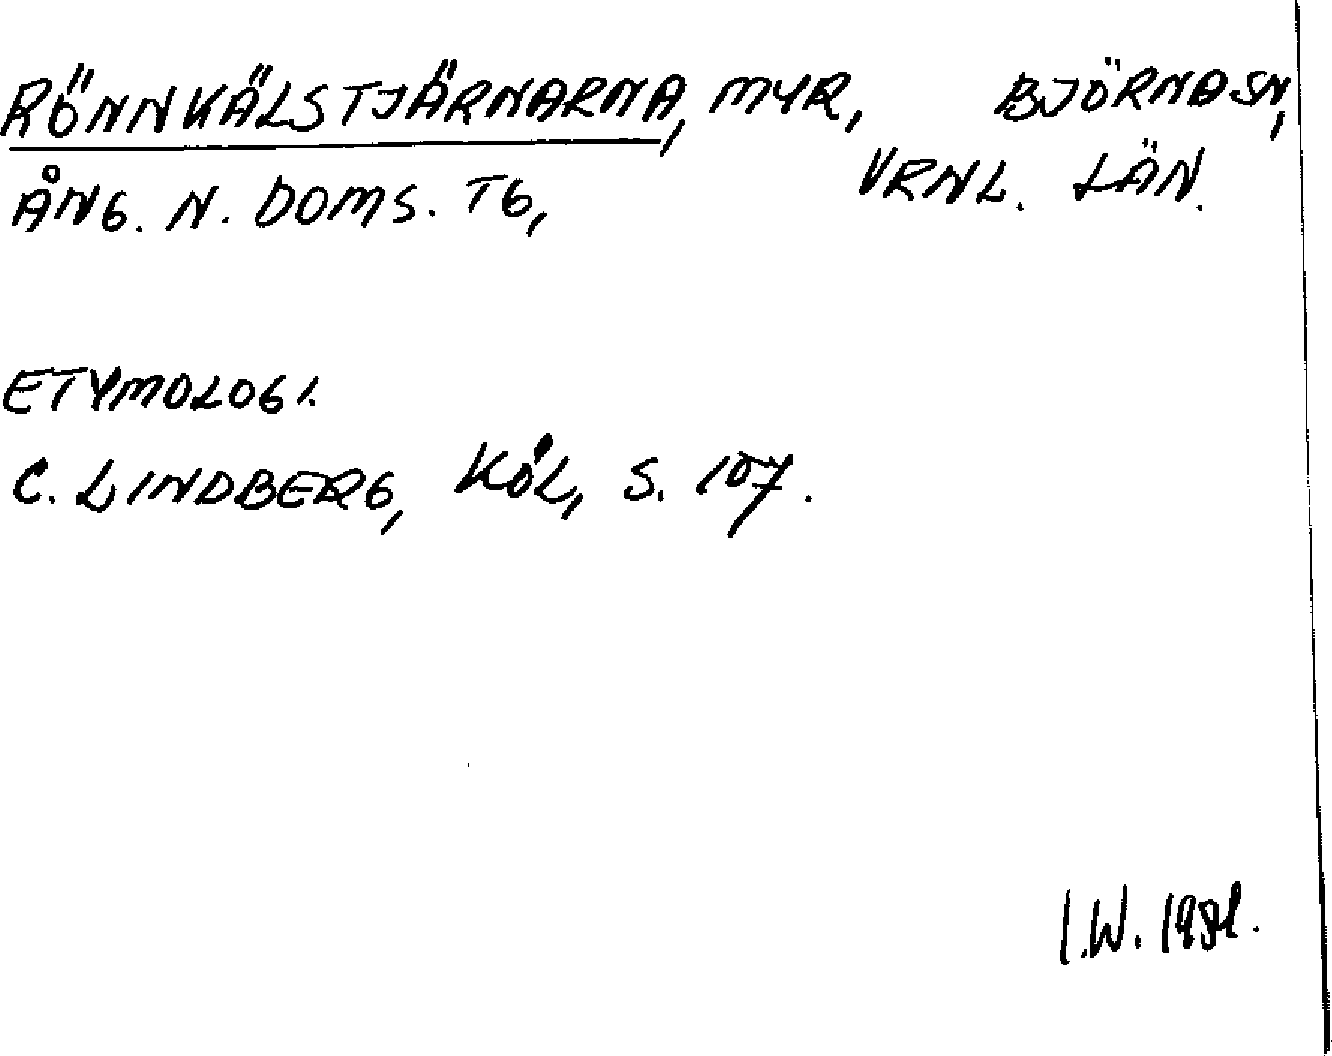 RÖNNKÄLSTJÄRNARNA, MYR, BJÖRNA SN,
ÅNG. N. DOMS. TG, VRNL. LÄN.
ETYMOLOGI.
C. LINDBERG, KÖL, S. 107.
I.W. 1981.